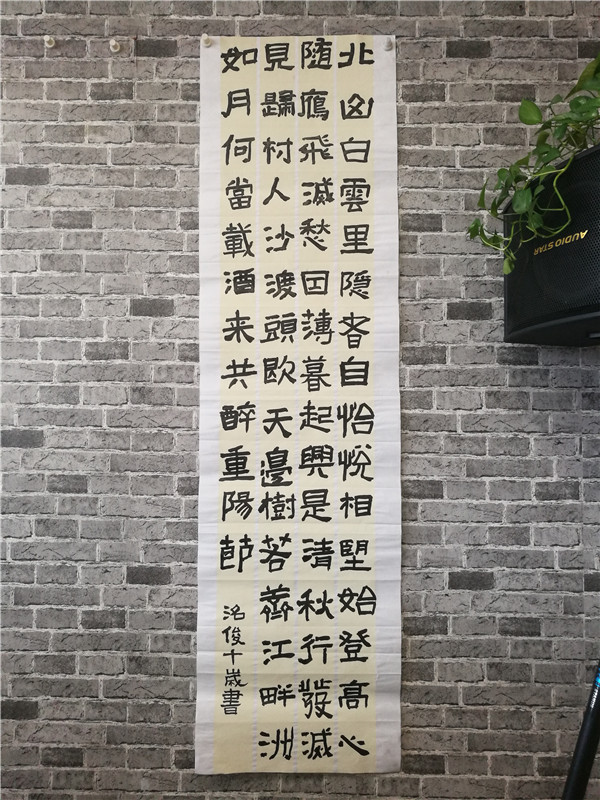 北山白雲里隐者自怡悅相望始登高心
随鴈飛滅愁因薄暮起興是清秋行發滅
見歸村人沙渡頭歇天邊樹若薺江畔洲
如月何當載酒来共醉重陽節
洺俊十歲書
AUDIO STAR